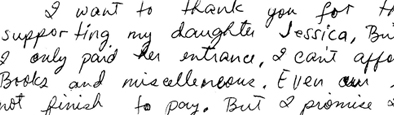 I want to thank you for th
supporting my daughter Jessica, Bu
I only paid her entrance, I can't affo
Books and miscelleneous. Even our
not finish to pay. But I promise I